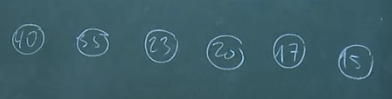 40 35 23 20 17 15